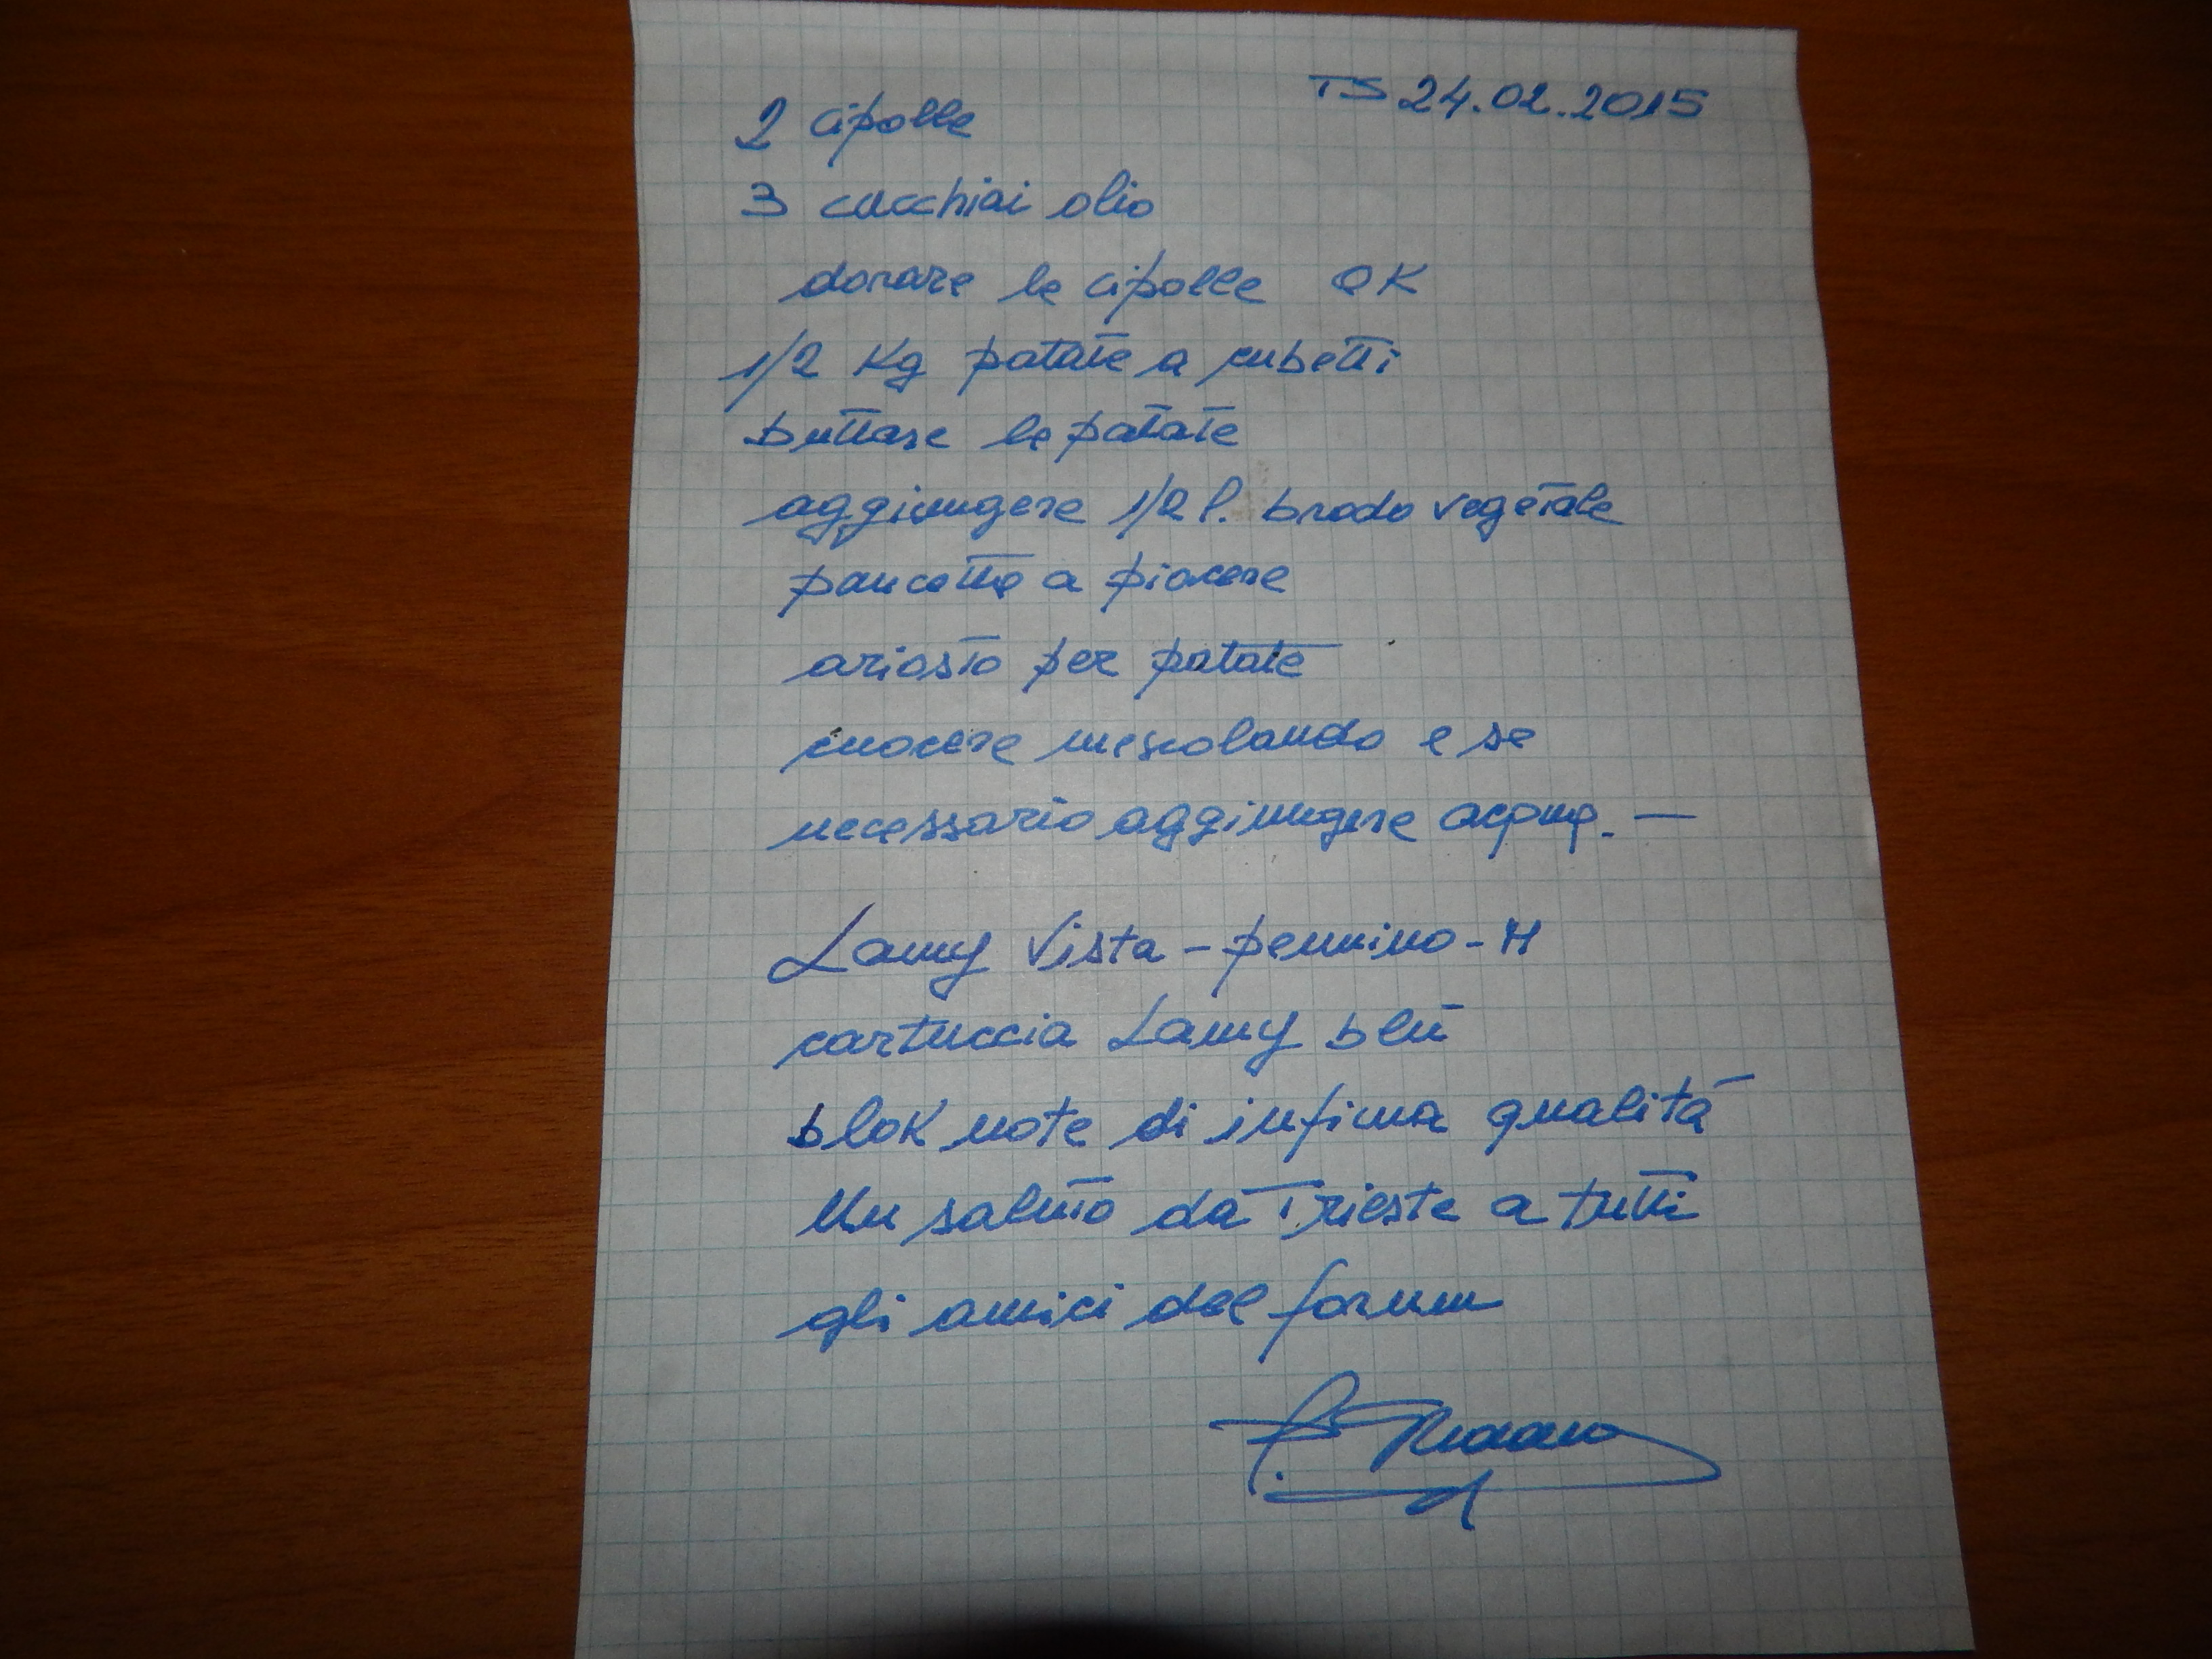 TS 24.02.2015
2 cipolle
3 cucchiai olio
dorare le cipolle OK
1/2 Kg patate a cubetti
buttare le patate
aggiungere 1/2 l. brodo vegetale
pancetta a piacere
ariosto per patate
cuocere mescolando e se
necessario aggiungere acqua. —
Lamy Vista - pennino - M
cartuccia Lamy blu
blok note di infima qualità
Un saluto da Trieste a tutti
gli amici del forum